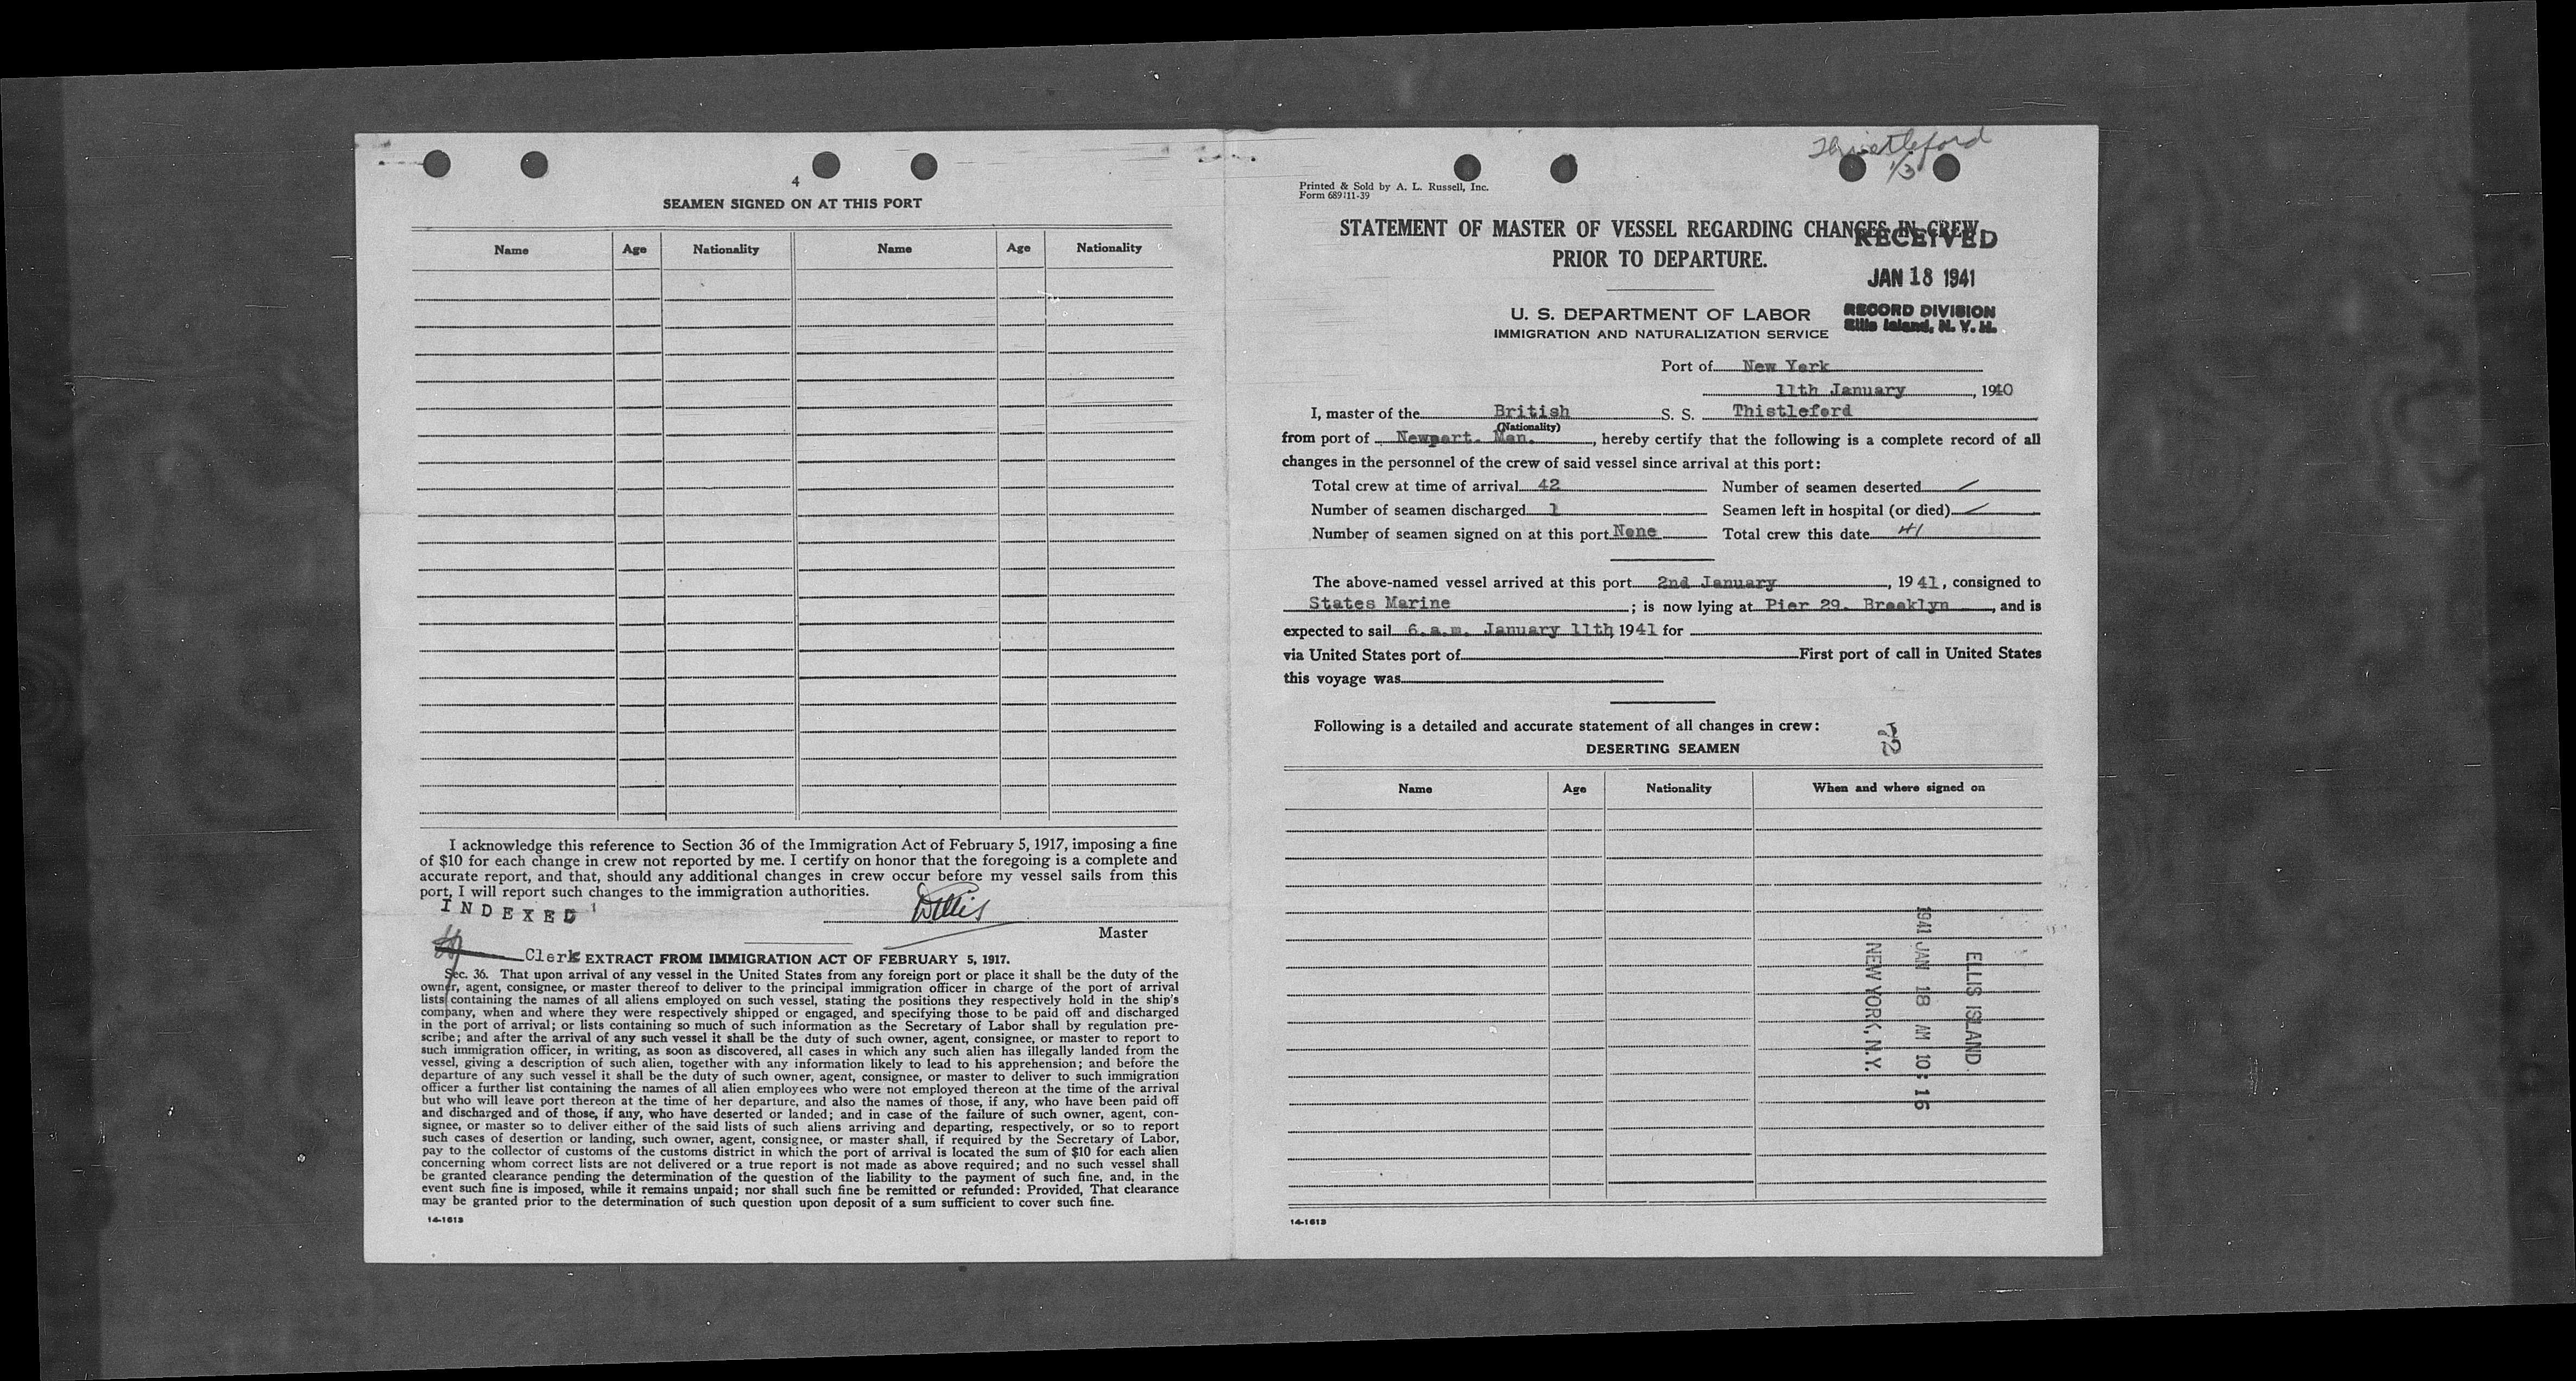 4
SEAMEN SIGNED ON AT THIS PORT
Name Age Nationality Name Age Nationality
I acknowledge this reference to Section 36 of the Immigration Act of February 5, 1917, imposing a fine
of $10 for each change in crew not reported by me. I certify on honor that the foregoing is a complete and
accurate report, and that, should any additional changes in crew occur before my vessel sails from this
port, I will report such changes to the immigration authorities.
INDEXED
Master
Clerk
EXTRACT FROM IMMIGRATION ACT OF FEBRUARY 5, 1917.
Sec. 36. That upon arrival of any vessel in the United States from any foreign port or place it shall be the duty of the
owner, agent, consignee, or master thereof to deliver to the principal immigration officer in charge of the port of arrival
lists containing the names of all aliens employed on such vessel, stating the positions they respectively hold in the ship's
company, when and where they were respectively shipped or engaged, and specifying those to be paid off and discharged
in the port of arrival; or lists containing so much of such information as the Secretary of Labor shall by regulation pre-
scribe; and after the arrival of any such vessel it shall be the duty of such owner, agent, consignee, or master to report to
such immigration officer, in writing, as soon as discovered, all cases in which any such alien has illegally landed from the
vessel, giving a description of such alien, together with any information likely to lead to his apprehension; and before the
departure of any such vessel it shall be the duty of such owner, agent, consignee, or master to deliver to such immigration
officer a further list containing the names of all alien employees who were not employed thereon at the time of the arrival
but who will leave port thereon at the time of her departure, and also the names of those, if any, who have been paid off
and discharged and of those, if any, who have deserted or landed; and in case of the failure of such owner, agent, con-
signee, or master so to deliver either of the said lists of such aliens arriving and departing, respectively, or so to report
such cases of desertion or landing, such owner, agent, consignee, or master shall, if required by the Secretary of Labor,
pay to the collector of customs of the customs district in which the port of arrival is located the sum of $10 for each alien
concerning whom correct lists are not delivered or a true report is not made as above required; and no such vessel shall
be granted clearance pending the determination of the question of the liability to the payment of such fine, and, in the
event such fine is imposed, while it remains unpaid; nor shall such fine be remitted or refunded: Provided, That clearance
may be granted prior to the determination of such question upon deposit of a sum sufficient to cover such fine.
14-1613
Thistleford
1/3
Printed & Sold by A. L. Russell, Inc.
Form 689 11-39
STATEMENT OF MASTER OF VESSEL REGARDING CHANGES IN CREW
PRIOR TO DEPARTURE.
RECEIVED
JAN 18 1941
RECORD DIVISION
Ellis Island, N. Y. H.
U. S. DEPARTMENT OF LABOR
IMMIGRATION AND NATURALIZATION SERVICE
Port of New York
11th January, 1940
I, master of the British S. S. Thistleford
(Nationality)
from port of Newport. Mon., hereby certify that the following is a complete record of all
changes in the personnel of the crew of said vessel since arrival at this port:
Total crew at time of arrival 42 Number of seamen deserted
Number of seamen discharged 1 Seamen left in hospital (or died)
Number of seamen signed on at this port None Total crew this date 41
The above-named vessel arrived at this port 2nd January, 1941, consigned to
States Marine; is now lying at Pier 29. Brooklyn, and is
expected to sail 6.a.m. January 11th 1941 for
via United States port of First port of call in United States
this voyage was
Following is a detailed and accurate statement of all changes in crew:
DESERTING SEAMEN
Name Age Nationality When and where signed on
ELLIS ISLAND
1941 JAN 18 AM 10:16
NEW YORK, N.Y.
14-1613